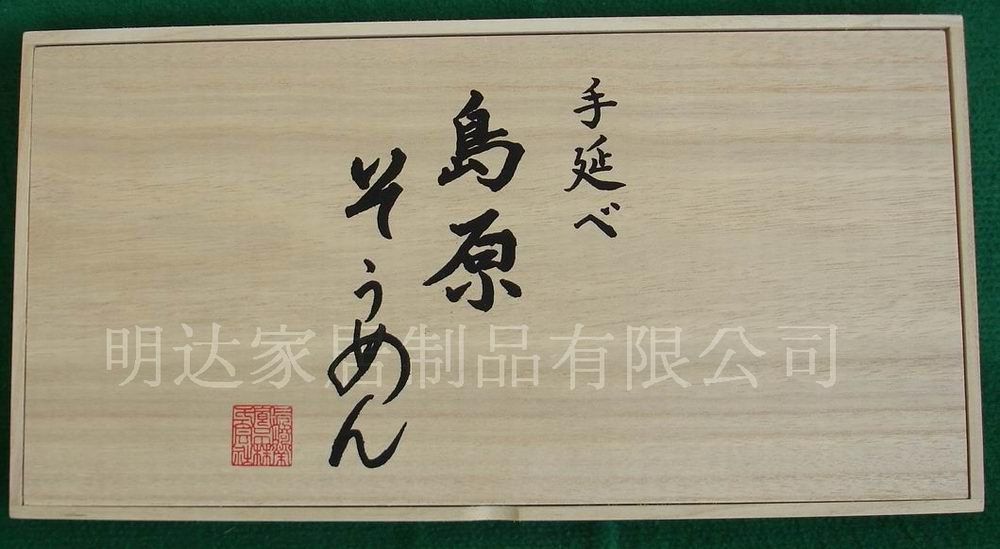 手延べ
島原
そうめん
明达家居制品有限公司